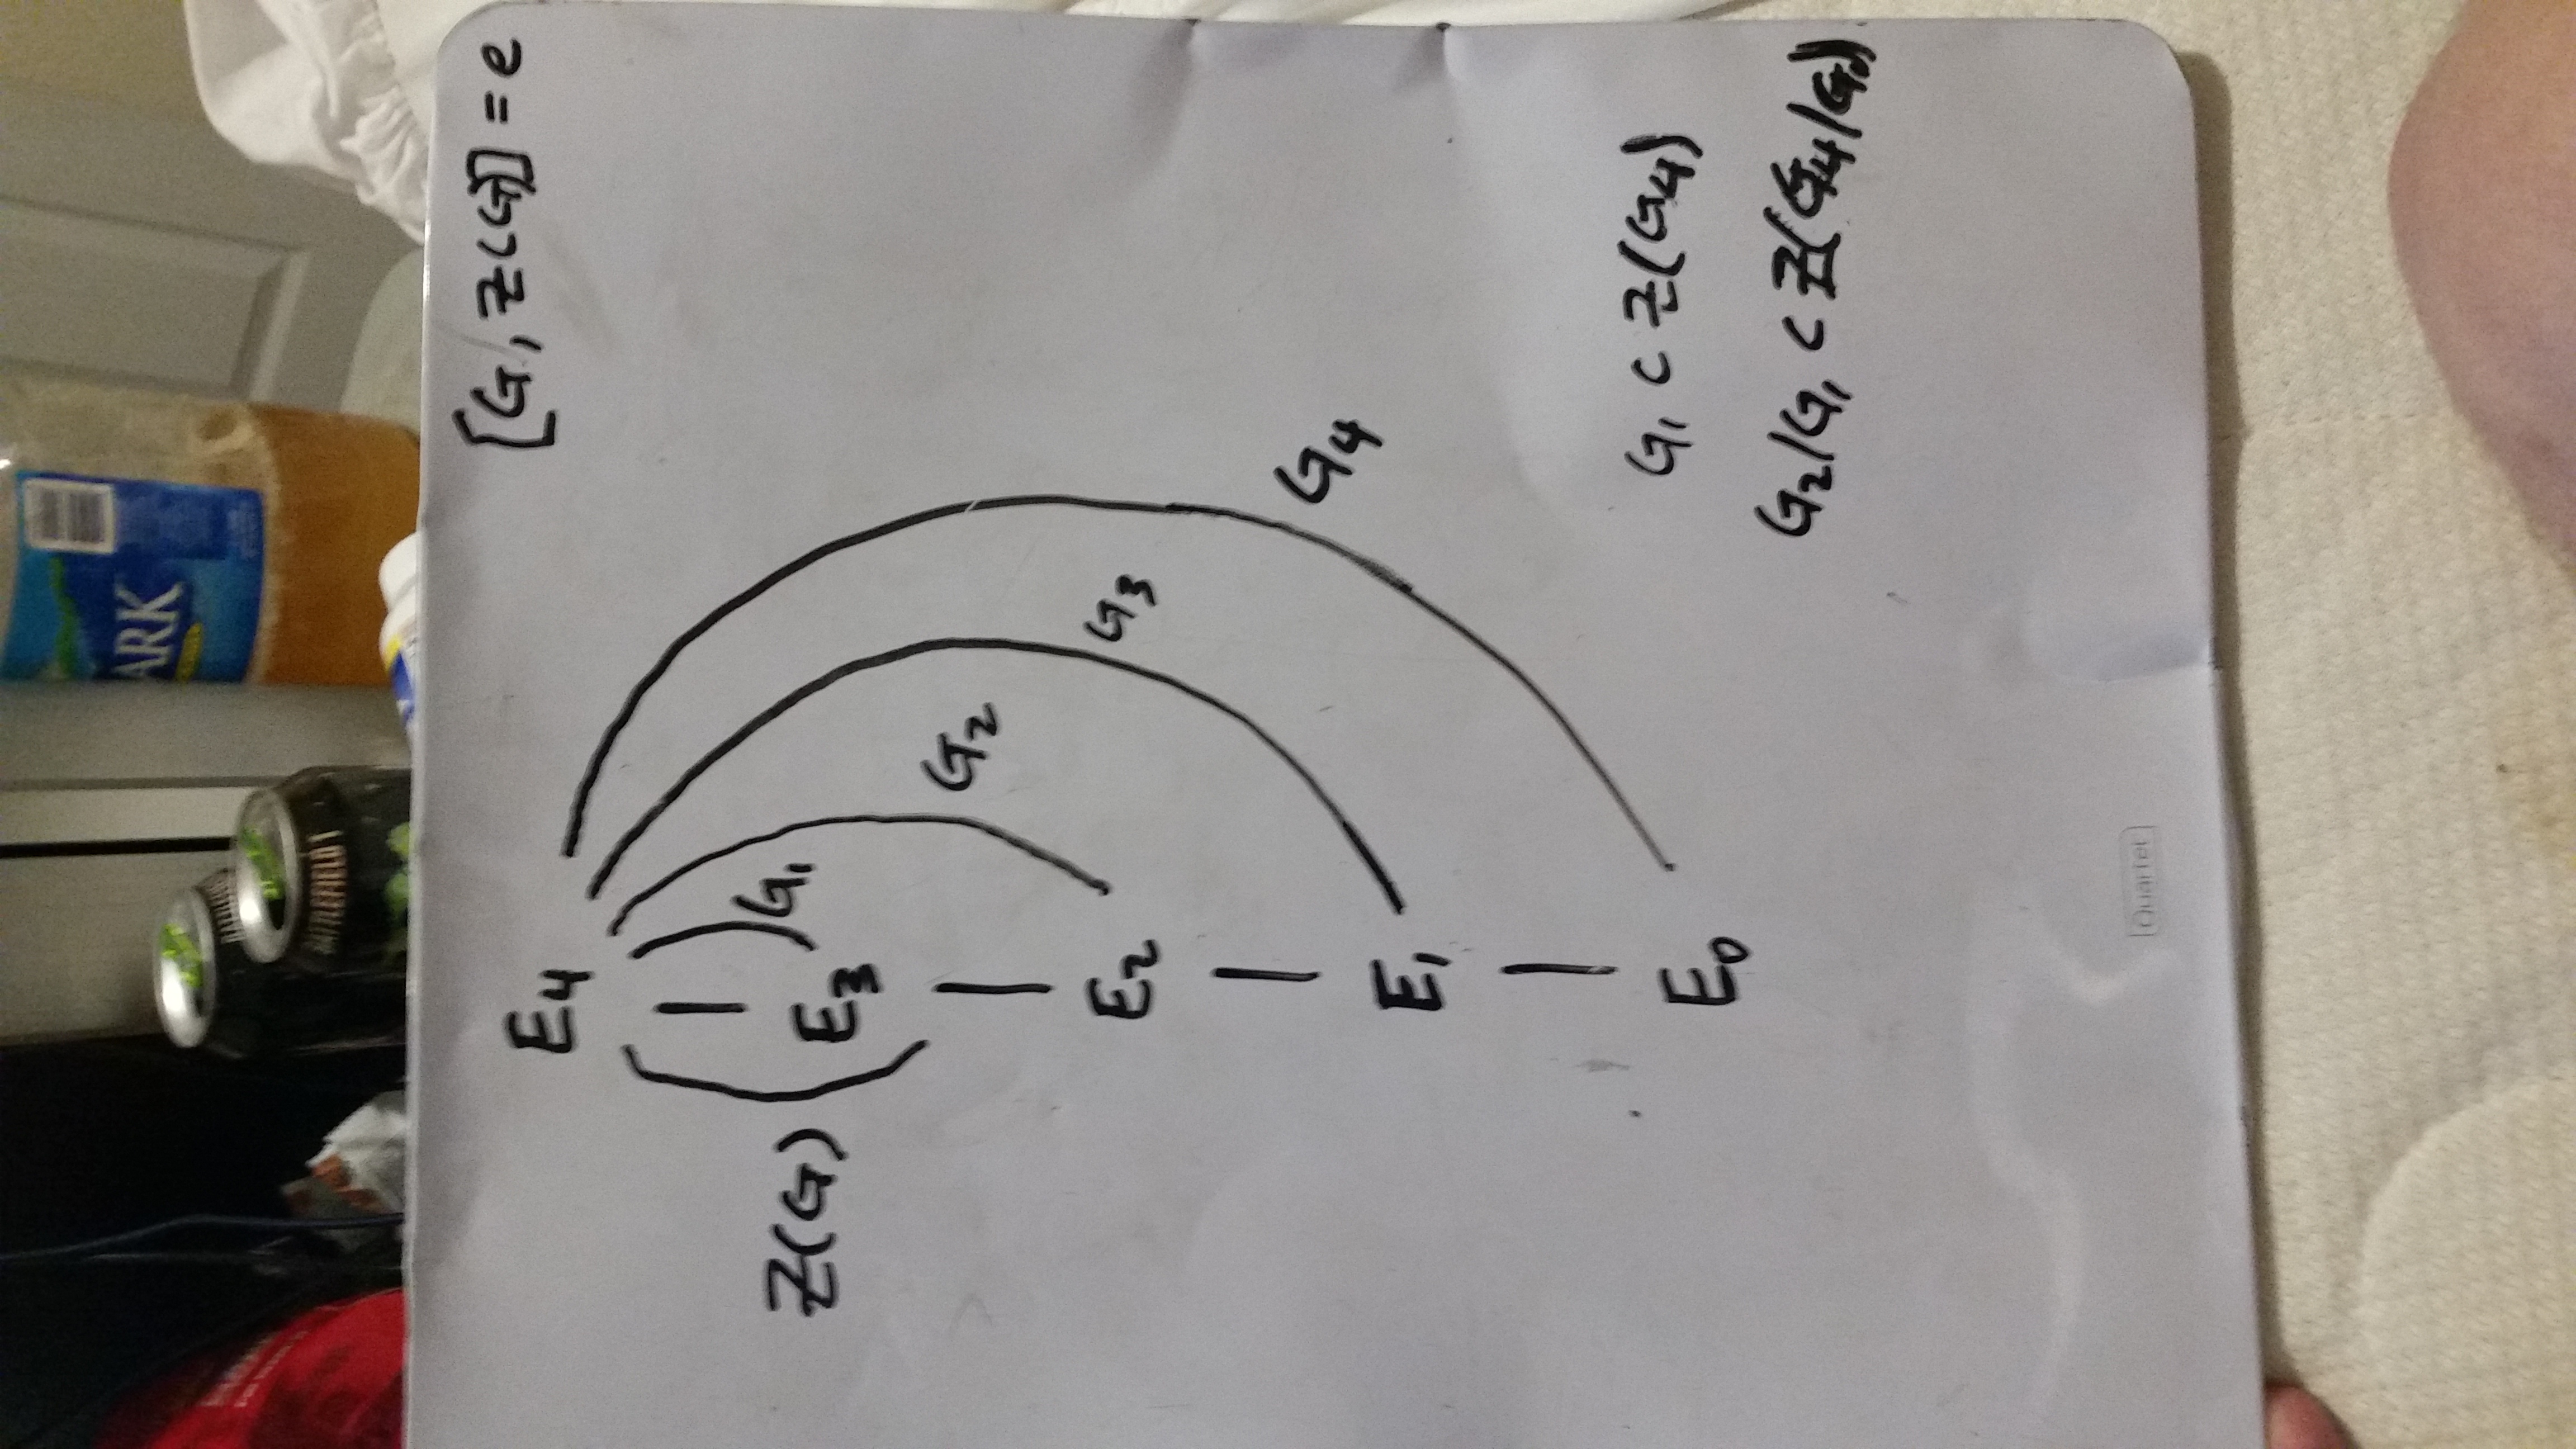 ARK
BATTLEFIELD 1
[G, Z(G)] = e
E4
Z(G)
G1
E3
G2
E2
G3
E1
G4
E0
G1 ⊂ Z(G4)
G2/G1 ⊂ Z(G4/G1)
Quartet